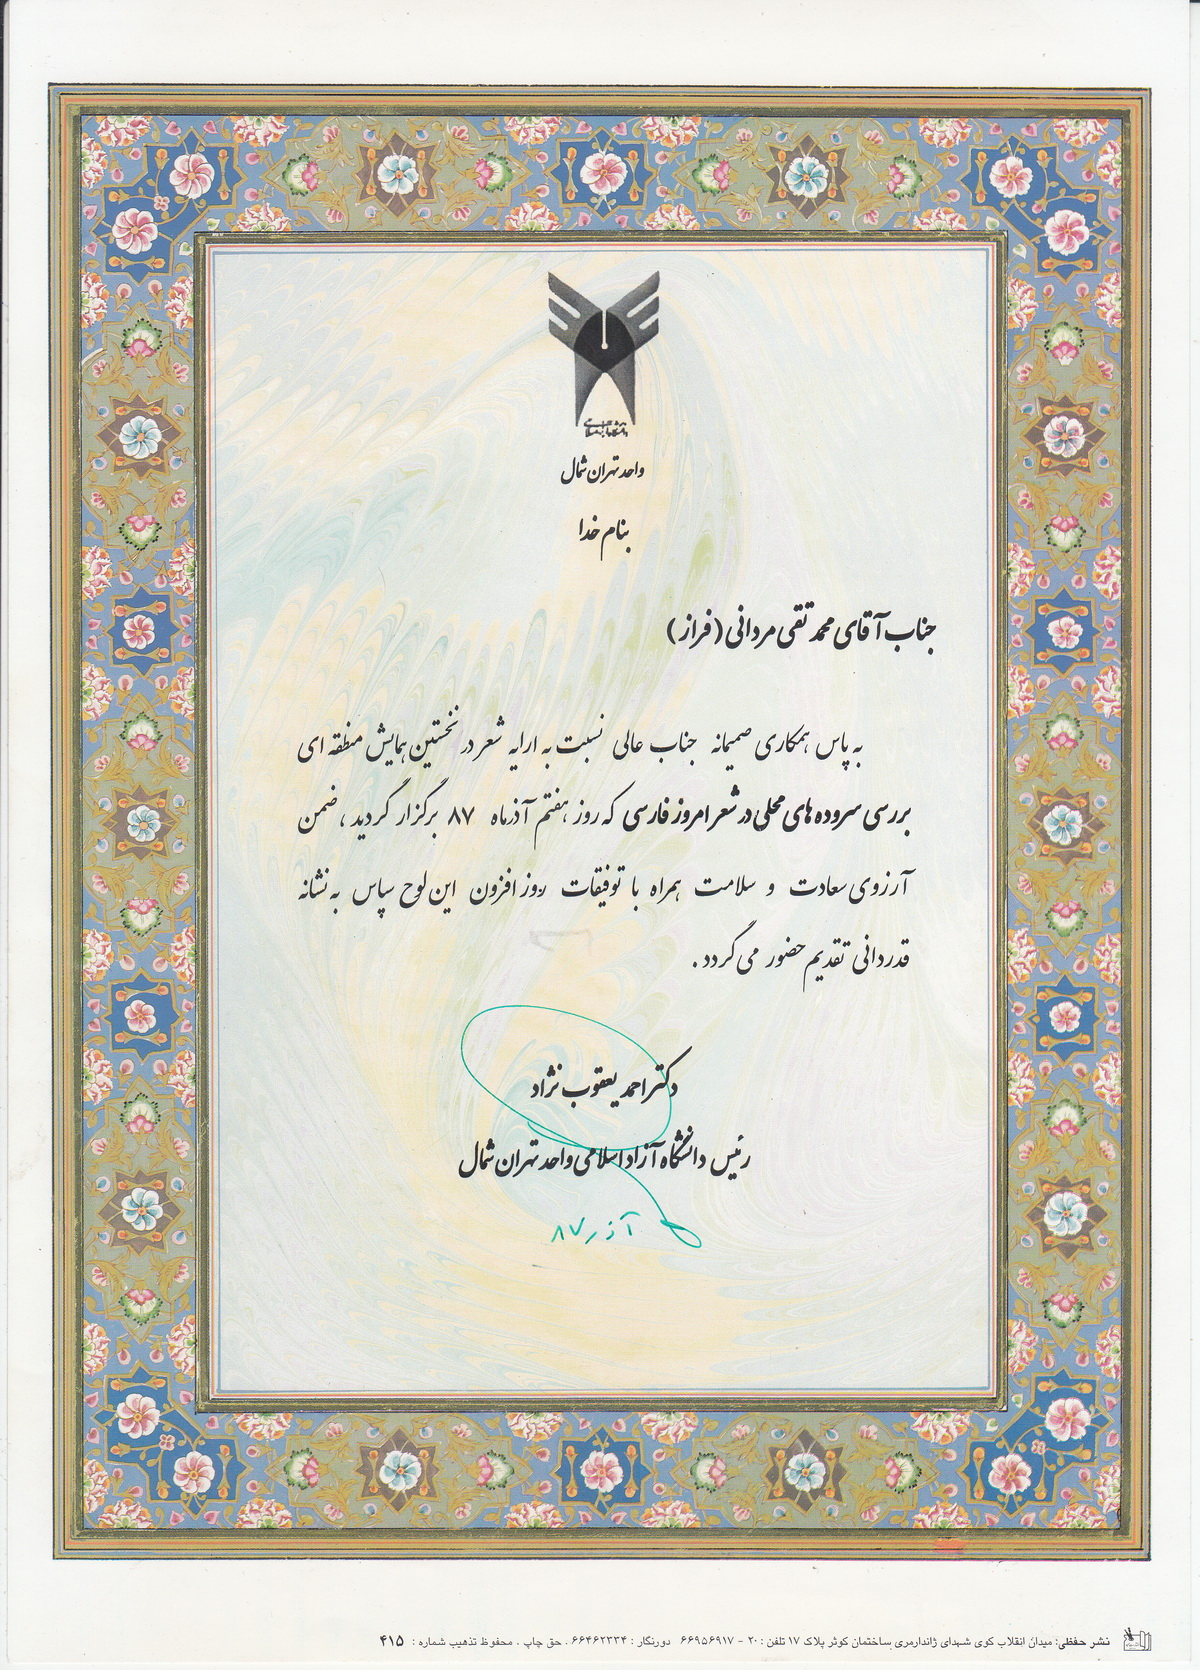 دانشگاه آزاد اسلامی
واحد تهران شمال
بنام خدا
جناب آقای محمد تقی مردانی (فراز)
به پاس همکاری صمیمانه جناب عالی نسبت به ارایه شعر در نخستین همایش منطقه ای
بررسی سروده های محلی در شعر امروز فارسی که روز هفتم آذرماه ۸۷ برگزار گردید، ضمن
آرزوی سعادت و سلامت همراه با توفیقات روز افزون این لوح سپاس به نشانه
قدردانی تقدیم حضور می گردد.
دکتر احمد یعقوب نژاد
رئیس دانشگاه آزاد اسلامی واحد تهران شمال
آذر ۸۷
نشر حفظی: میدان انقلاب کوی شهدای ژاندارمری ساختمان کوثر پلاک ۱۷ تلفن: ۲۰ - ۶۶۹۵۶۹۱۷ دورنگار: ۶۶۴۶۲۳۳۴. حق چاپ. محفوظ تذهیب شماره: ۴۱۵